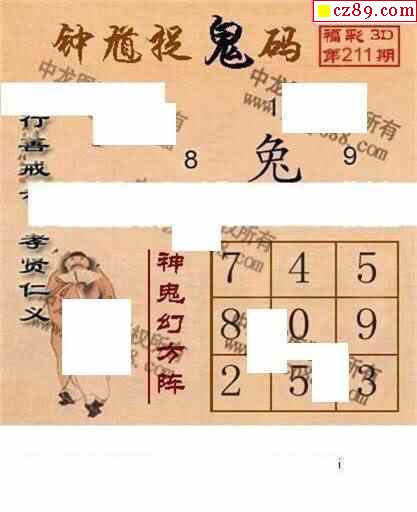 cz89.com
钟馗捉鬼码
福彩3D
第211期
1
8
兔
9
行善戒
孝贤仁义
神鬼幻方阵
7 4 5
8 0 9
2 5 3
i